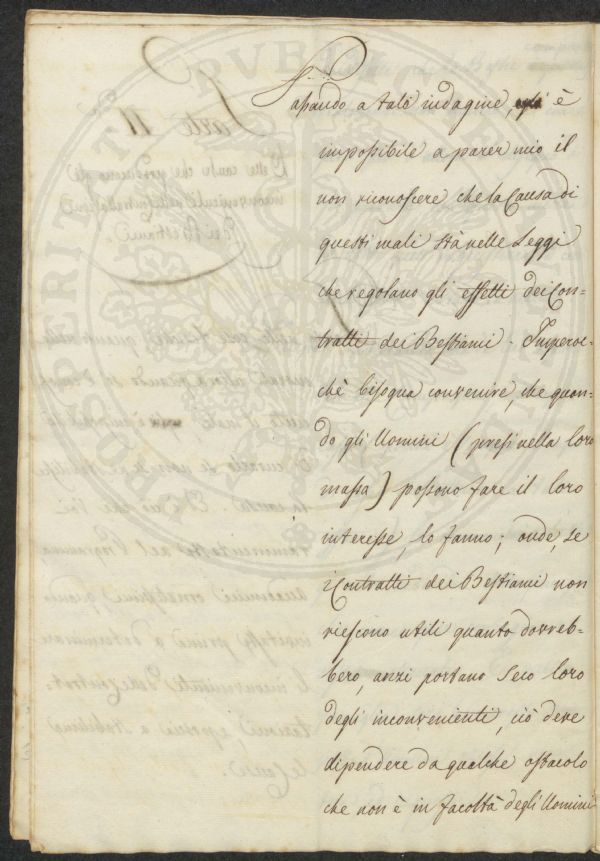 Passando a tale indagine, è
impossibile a parer mio il
non riconoscere che la Causa di
questi mali stà nelle Leggi
che regolano gli effetti dei Con=
tratti dei Bestiami. Imperoc=
chè bisogna convenire, che quan=
do gli Uomini (presi nella loro
massa) possono fare il loro
interesse, lo fanno; onde, se
i Contratti dei Bestiami non
riescono utili quanto dovreb=
bero, anzi portano seco loro
degli inconvenienti, ciò deve
dipendere da qualche ostacolo
che non è in facoltà degli Uomini